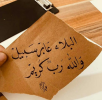 البلاء عابر سبيل
والله رب كريم